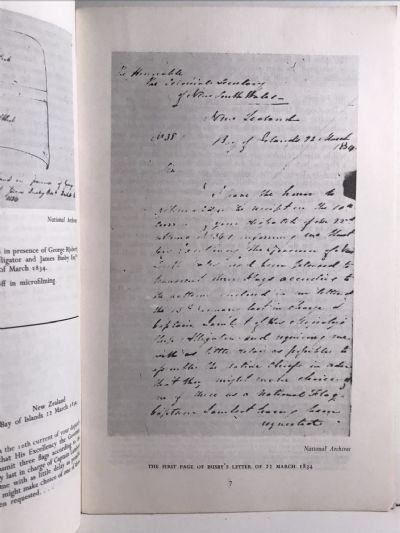 National Archives
in presence of George
lligator and James Busby Esq
of March 1834.
off in microfilming
New Zealand
Bay of Islands 22 March
the 10th current of your
that His Excellency the
three flags according to
last in charge of Captain
me with as little delay as
might make choice of one of
requested . . . .
The Honorable
The Colonial Secretary
of New South Wales
New Zealand
No 38
Bay of Islands 22 March
1834
Sir
I have the honor to
acknowledge the receipt on the 10th
current of your dispatch of the
informing me that
His Excellency the Governor
had been pleased to
transmit three flags according to
the pattern enclosed in my letter of
the last in charge of
Captain Lambert of His Majesty's
Ship Alligator and requiring me
with as little delay as possible to
assemble the native chiefs in order
that they might make choice
of one of these as a National Flag.
Captain Lambert having been
requested
National Archives
THE FIRST PAGE OF BUSBY'S LETTER OF 22 MARCH 1834
7